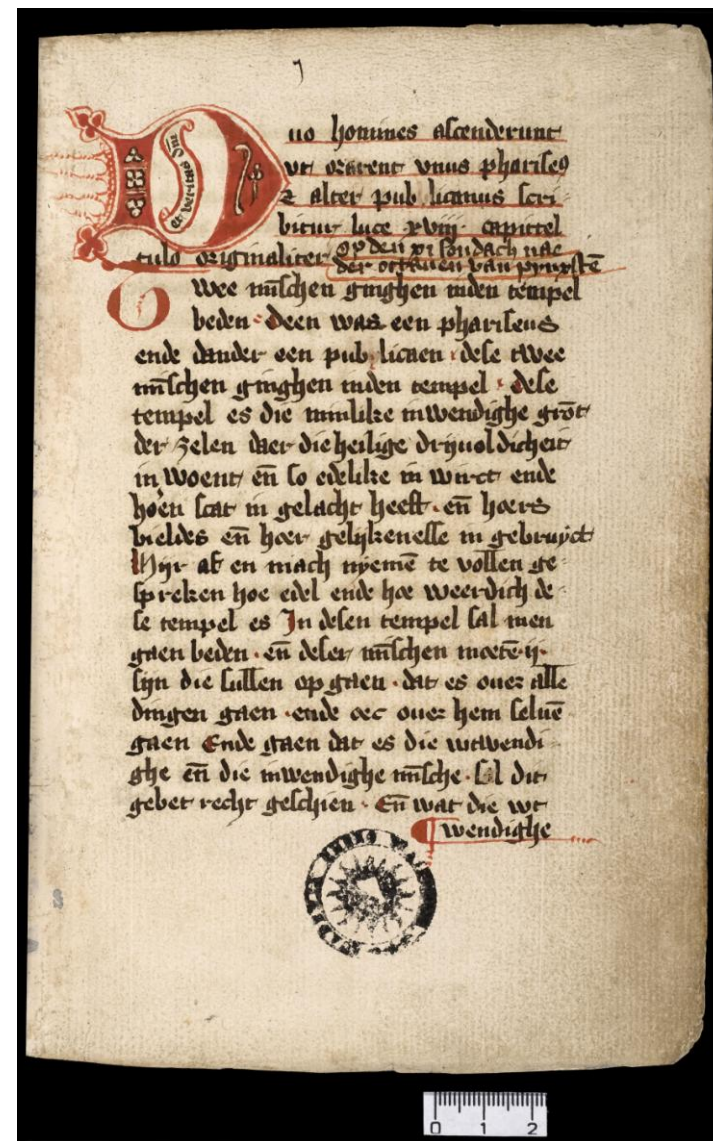 7
Duo homines ascenderunt
vt orarent vnus pharise9
⁊ alter pub licanus scri-
bitur luce xviij capittel
tulo originaliter op den xi sondach nae
der octauen van pynxstē
Twee mīschen ginghen inden tempel
beden · deen was een phariseus
ende dander een pub licaen · dese twee
mīschen ginghen inden tempel · dese
tempel es die minlike inwendighe grōt
der zelen daer die heilige drijuoldicheit
in woent eñ so edelike in wirct ende
hoen scat in gelacht heeft · eñ hoers
bieldes eñ hoer gelijkenesse in gebruyct
Hijr af en mach nyemē te vollen ge-
spreken hoe edel ende hoe weerdich de-
se tempel es In desen tempel sal men
gaen beden · eñ deser mīschen moetē ij·
sijn die sullen op gaen · dat es ouer alle
dingen gaen · ende oec ouer hem seluē
gaen Ende gaen dat es die wtwendi
ghe eñ die inwendighe mīsche · Sal dit
gebet recht geschien · Eñ wat die wt
wendighe
et veritas dn̄i
0 1 2